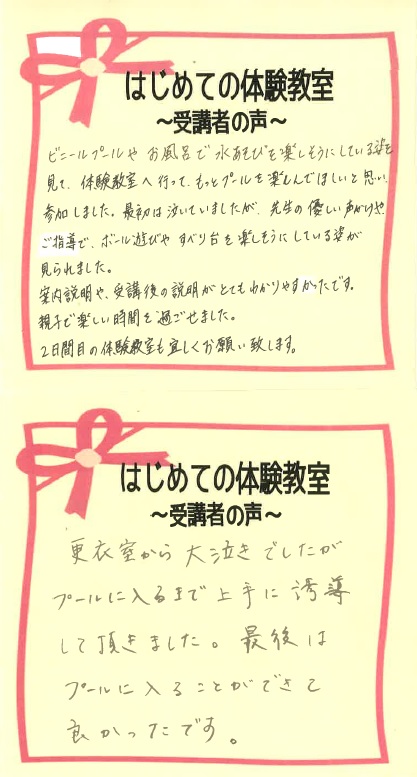 はじめての体験教室
～受講者の声～
ビニールプールやお風呂で水あそびを楽しそうにしている姿を
見て、体験教室へ行って、もっとプールを楽しんでほしいと思い、
参加しました。最初は泣いていましたが、先生の優しい声がけや、
ご指導で、ボール遊びやすべり台を楽しそうにしている姿が
見られました。
案内説明や、受講後の説明がとてもわかりやすかったです。
親子で楽しい時間を過ごせました。
2日間目の体験教室も宜しくお願い致します。
はじめての体験教室
～受講者の声～
更衣室から大泣きでしたが
プールに入るまで上手に誘導
して頂きました。最後は
プールに入ることができて
良かったです。